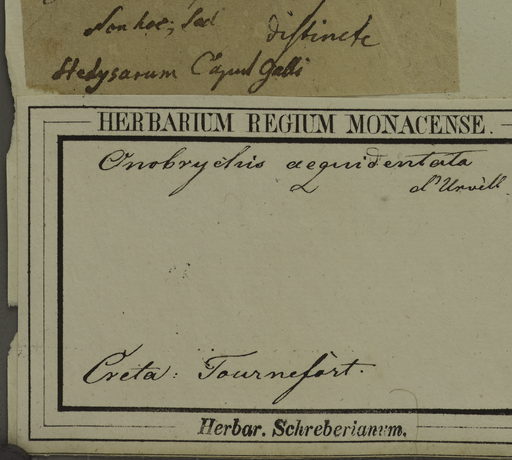 Non hoc; sed distincte
Hedysarum Caput Galli
HERBARIUM REGIUM MONACENSE.
Onobrychis aequidentata
d'Urvill
Creta: Tournefort.
Herbar. Schreberianum.